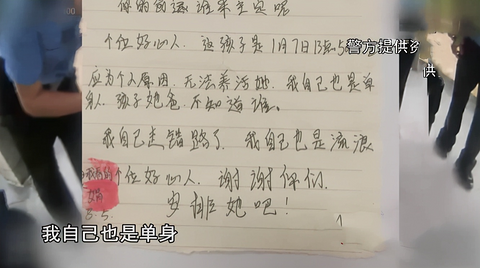 你的命运谁来主宰呢
警方提供
供
个位好心人．这孩子是1月7日
应为个人原因．无法养活她．我自己也是单
身人．孩子她爸．不知道谁。
我自己走错路了．我自己也是流浪
个位好心人．谢谢你们．
安排她吧！
我自己也是单身